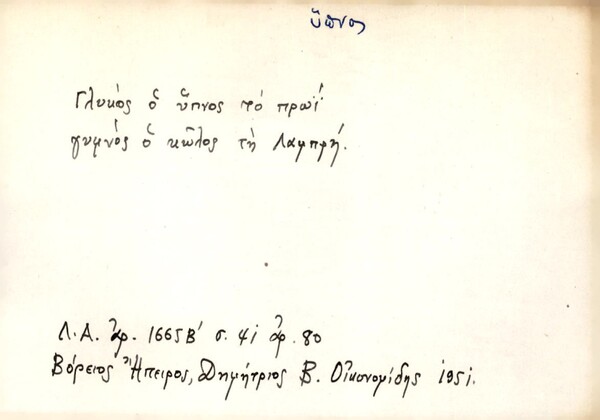 ὕπνος
Γλυκός ὁ ὕπνος τό πρωΐ
γυμνός ὁ κῶλος τή Λαμπρή.
Λ.Α. ἀρ. 1665 Β' σ. 41 ἀρ. 80
Βόρειος Ἤπειρος, Δημήτριος Β. Οἰκονομίδης 1951.